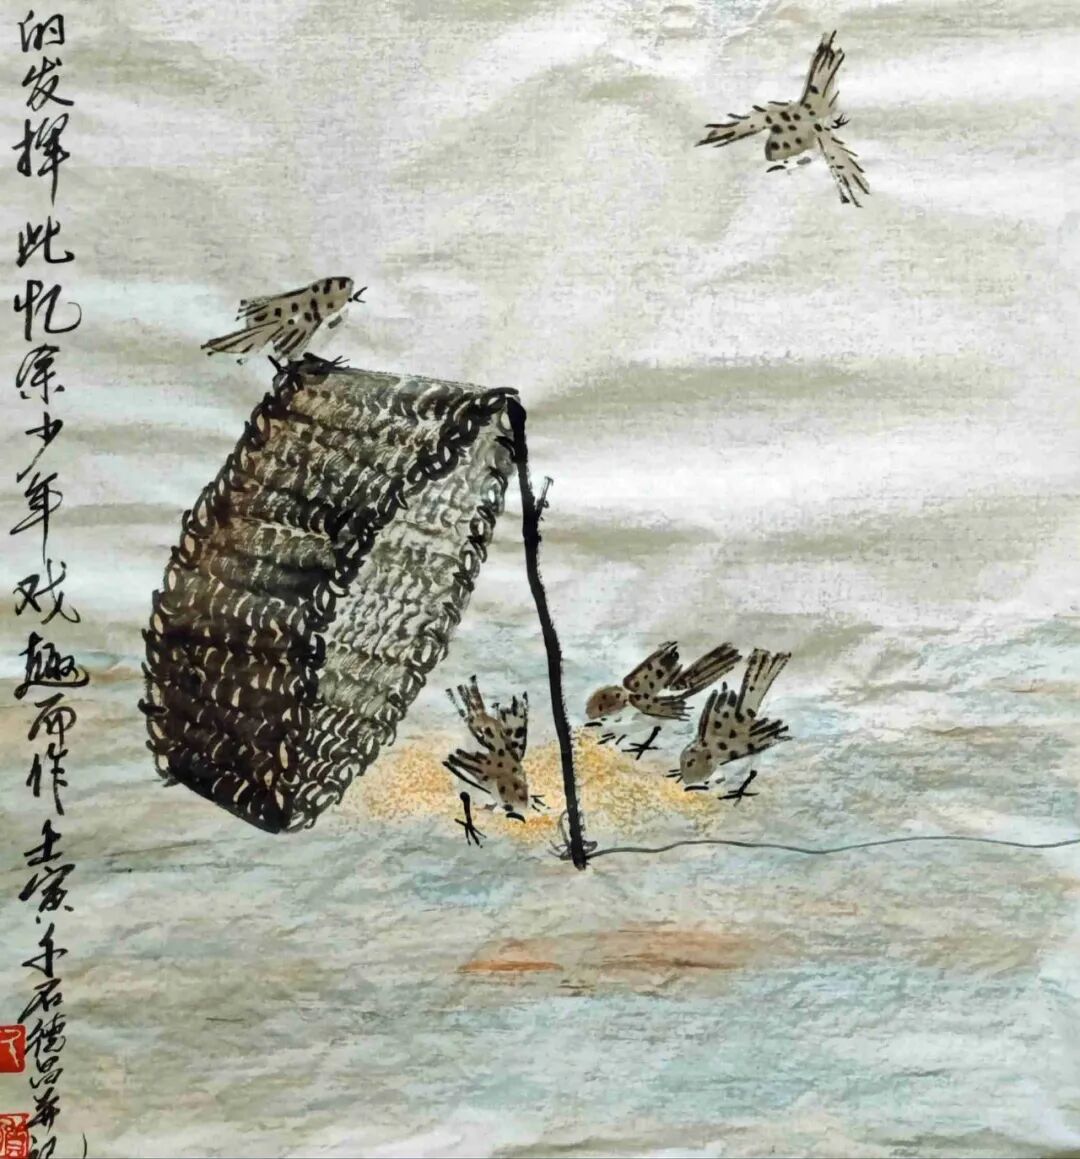 的发挥此忆余少年戏趣而作壬寅石德昌并记